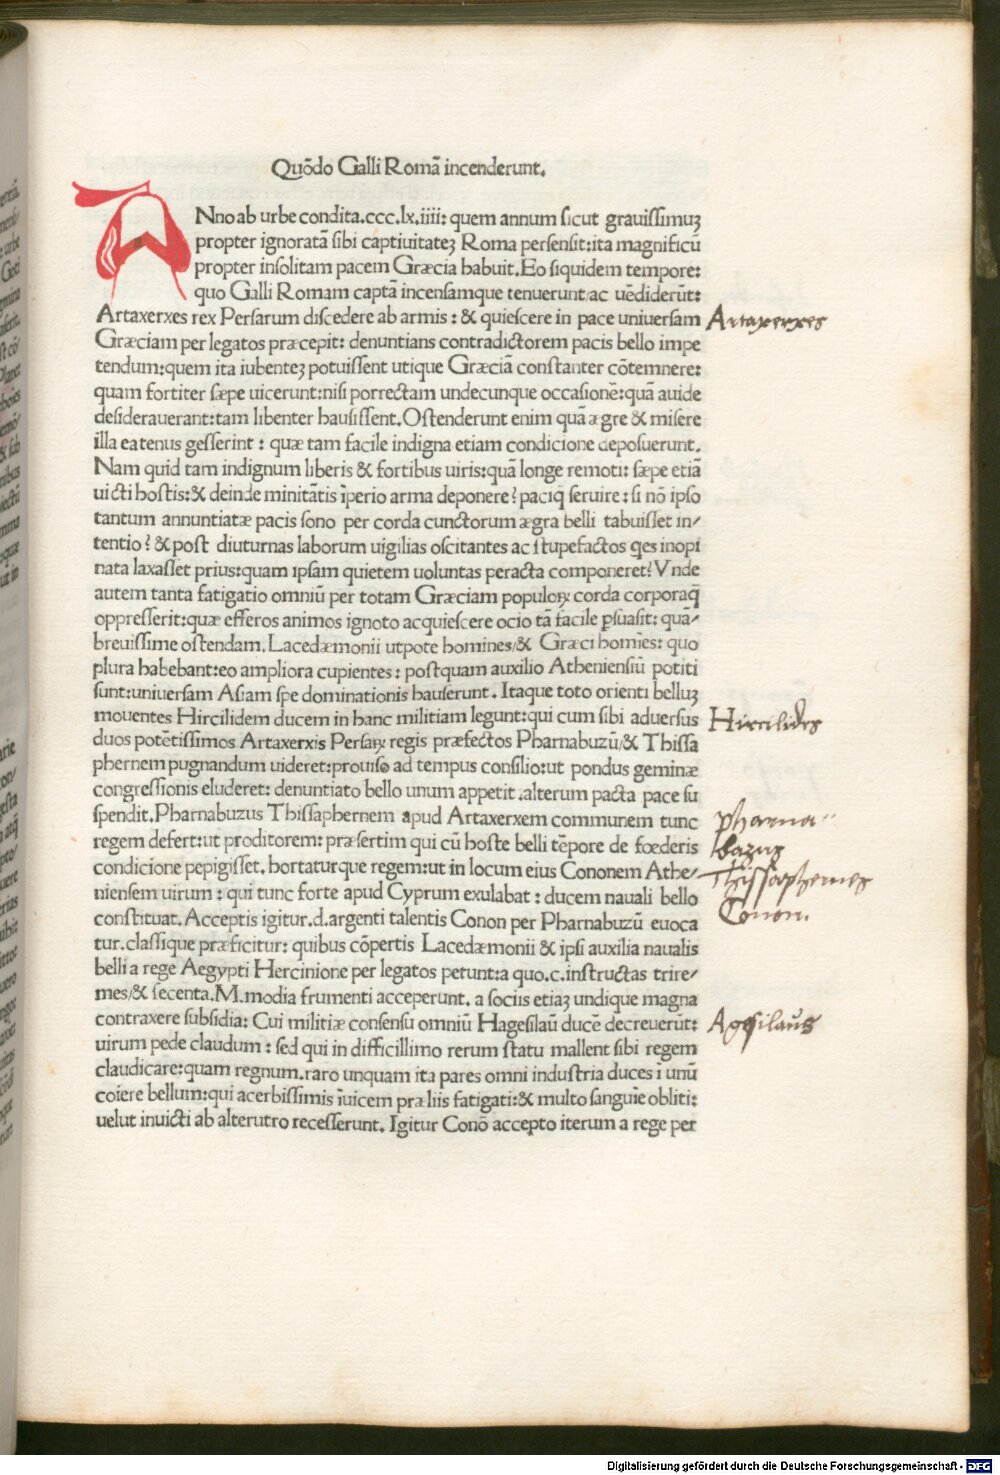 Quōdo Galli Romā incenderunt.
ANno ab urbe condita.ccc.lx.iiii: quem annum sicut grauissimuꝫ
propter ignoratā sibi captiuitateꝫ Roma persensit:ita magnificū
propter insolitam pacem Græcia habuit.Eo siquidem tempore:
quo Galli Romam captā incensamque tenuerunt/ac uēdiderūt:
Artaxerxes rex Persarum discedere ab armis: & quiescere in pace uniuersam
Artaxerxes
Græciam per legatos præcepit: denuntians contradictorem pacis bello impe
tendum:quem ita iubenteꝫ potuissent utique Græciā constanter cōtemnere:
quam fortiter sæpe uicerunt:nisi porrectam undecunque occasionē:quā auide
desiderauerant:tam libenter hausissent.Ostenderunt enim quā ægre & misere
illa eatenus gesserint: quæ tam facile indigna etiam condicione deposuerunt.
Nam quid tam indignum liberis & fortibus uiris:quā longe remoti: sæpe etiā
uicti hostis:& deinde minitātis īperio arma deponere? paciq̄ seruire: si nō ipso
tantum annuntiatæ pacis sono per corda cunctorum ægra belli tabuisset in/
tentio? & post diuturnas laborum uigilias oscitantes ac stupefactos q̄es inopi
nata laxasset prius:quam ipsam quietem uoluntas peracta componeret? Vnde
autem tanta fatigatio omniū per totam Græciam populoꝝ corda corporaq̄
oppresserit:quæ efferos animos ignoto acquiescere ocio tā facile ꝑsuasit: quā/
breuissime ostendam. Lacedæmonii utpote homines/& Græci homīes: quo
plura habebant:eo ampliora cupientes: postquam auxilio Atheniensiū potiti
sunt:uniuersam Asiam spe dominationis hauserunt. Itaque toto orienti belluꝫ
mouentes Hircilidem ducem in hanc militiam legunt:qui cum sibi aduersus
Hircilides
duos potētissimos Artaxerxis Persaꝝ regis præfectos Pharnabuzū/& Thissa
phernem pugnandum uideret:prouiso ad tempus consilio:ut pondus geminæ
congressionis eluderet: denuntiato bello unum appetit.alterum pacta pace su
spendit.Pharnabuzus Thissaphernem apud Artaxerxem communem tunc
pharna-
regem defert:ut proditorem: præsertim qui cū hoste belli tēpore de fœderis
bazus
condicione pepigisset. hortaturque regem:ut in locum eius Cononem Athe/
Thissaphernes
niensem uirum: qui tunc forte apud Cyprum exulabat: ducem nauali bello
Conon.
constituat.Acceptis igitur.d.argenti talentis Conon per Pharnabuzū euoca
tur.classique præficitur: quibus cōpertis Lacedæmonii & ipsi auxilia naualis
belli a rege Aegypti Hercinione per legatos petunt:a quo.c.instructas trire/
mes/& secenta.M.modia frumenti acceperunt. a sociis etiaꝫ undique magna
contraxere subsidia: Cui militiæ consensu omniū Hagesilaū ducē decreuerūt:
Agesilaus
uirum pede claudum: sed qui in difficillimo rerum statu mallent sibi regem
claudicare:quam regnum.raro unquam ita pares omni industria duces ī unū
coiere bellum:qui acerbissimis īuicem præliis fatigati:& multo sanguīe obliti:
uelut inuicti ab alterutro recesserunt. Igitur Conō accepto iterum a rege per
Digitalisierung gefördert durch die Deutsche Forschungsgemeinschaft - DFG